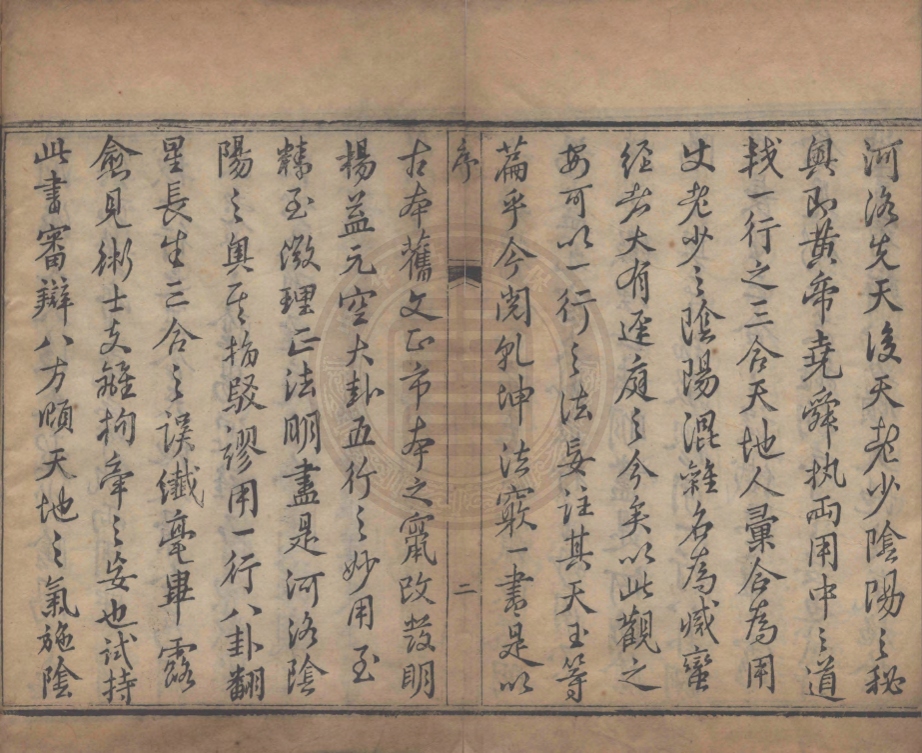 河洛先天後天老少陰陽之秘
奧即黃帝堯舜执兩用中之道
較一行之三合天地人彙合為用
丈老少之陰陽混雜名為滅蠻
经者大有逕庭之分矣以此觀之
安可以一行之法妄註其天玉等
篇乎今閱乹坤法竅一書是以
序
二
古本舊文正市本之竄改发明
楊益元空大卦五行之妙用至
精至微理正法明盡是河洛陰
陽之奧其指駁謬用一行八卦翻
星長生三合之误纖毫畢露
愈見術士支離拘牽之妄也试持
此書審辯八方順天地之氣施陰